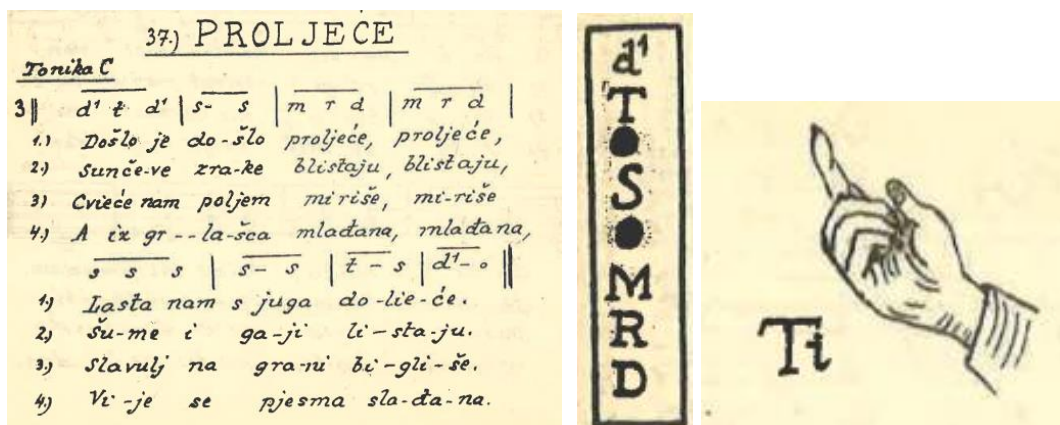 37.) PROLJEĆE
Tonika C
3‖ d¹ t d¹ | s- s | m r d | m r d |
1.) Došlo je do-šlo proljeće, proljeće,
2.) Sunče-ve zra-ke blistaju, blistaju,
3) Cvieće nam poljem miriše, mi-riše
4.) A iz gr--la-šca mlađana, mlađana,
s s s | s- s | t - s | d¹- o ‖
1.) Lasta nam s juga do-lie-će.
2.) Šu-me i ga-ji li-sta-ju.
3.) Slavulj na gra-ni bi-gli-še.
4.) Vi-je se pjesma sla-đa-na.
d¹
T
●
S
●
M
R
D
Ti